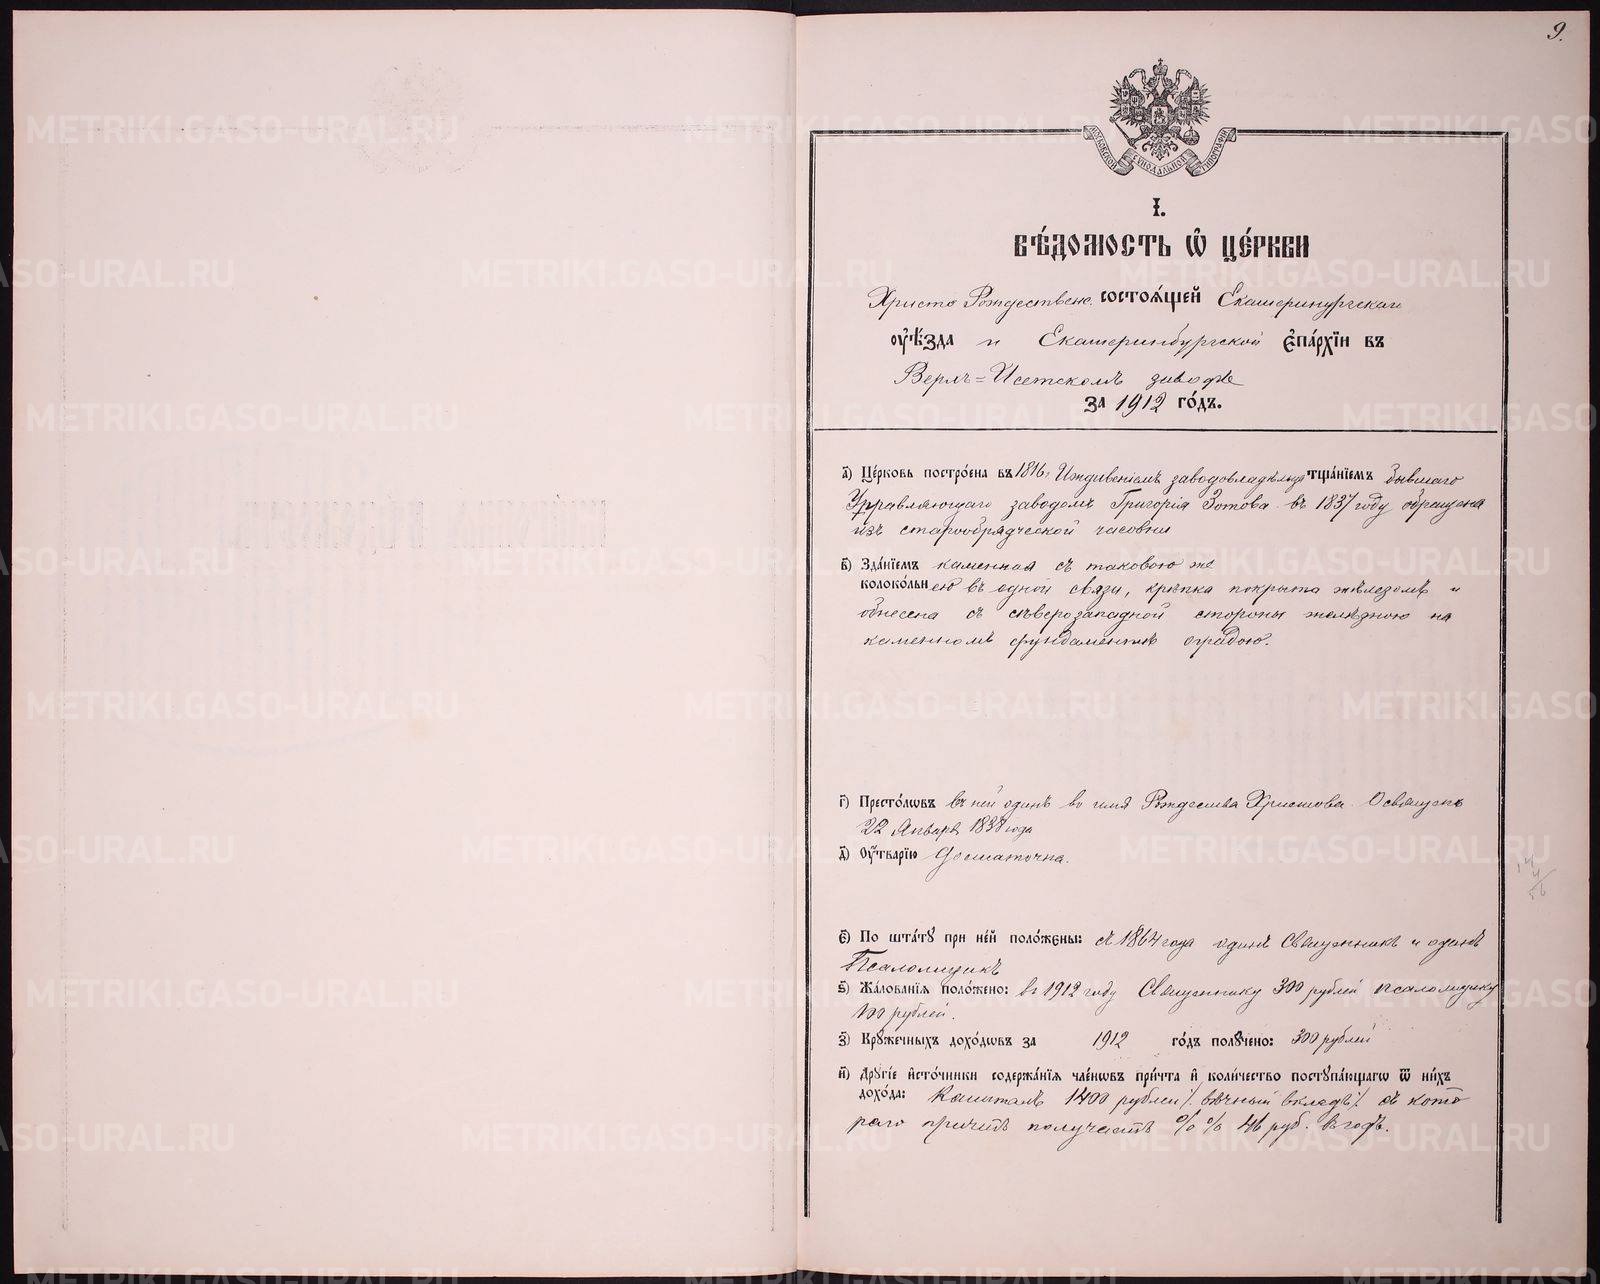 9.
МОСКОВСКОЙ СУНОДАЛЬНОЙ ТИПОГРАФІИ
I.
ВѢ́ДОМОСТЬ Ѡ҆ ЦЕ́РКВИ
Христо Рождествено состоѧ́щей Екатеринургскаго
ᲂу҆ѣ́зда и Екатеринбургской є҆па́рхїи въ
Верхъ=Исетскомъ заводѣ
за 1912 го́дъ.
а҃) Це́рковь постро́ена въ 1816г. Иждивеніемъ заводовладѣльца тща́нїемъ бывшаго
Управляющаго заводомъ Григорія Зотова въ 1837 году обращена
изъ старообрядческой часовни
в҃) Зда́нїемъ каменная съ таковою же
колоко́льнею въ одной связи, крѣпка покрыта желѣзомъ и
обнесена съ сѣверозападной стороны желѣзною на
каменномъ фундаментѣ оградою.
г҃) Престо́лѡвъ въ ней одинъ во имя Рождества Христова. Освященъ
22 Января 1838 года
д҃) Оу҆́тварїю Достаточна.
є҃) По шта́тꙋ при не́й поло́жены: съ 1864 года одинъ Священникъ и одинъ
Псаломщикъ
ѕ҃) Жа́лованїѧ поло́жено: въ 1912 году Священнику 300 рублей псаломщику
100 рублей.
з҃) Крꙋ́жечныхъ дохо́дѡвъ за 1912 го́дъ полꙋ́чено: 300 рублей
и҃) Дрꙋгі́е и҆сто́чники содержа́нїѧ чле́нѡвъ при́чта и҆ коли́чество поступа́ющагѡ ѿ ни́хъ
дохо́да: Капиталъ 1400 рублей /. вѣчный вкладъ/. съ кото
раго причтъ получаетъ %% 46 руб. въ годъ.
METRIKI.GASO-URAL.RU